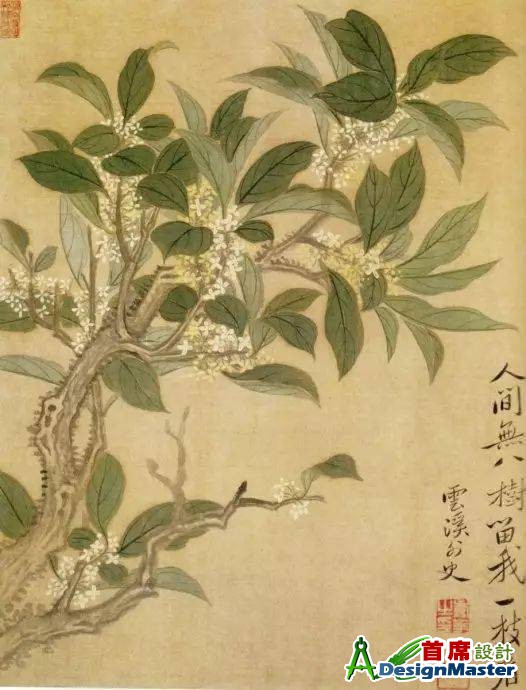 人間無八樹留我一枝
雲溪外史
首席設計
DesignMaster